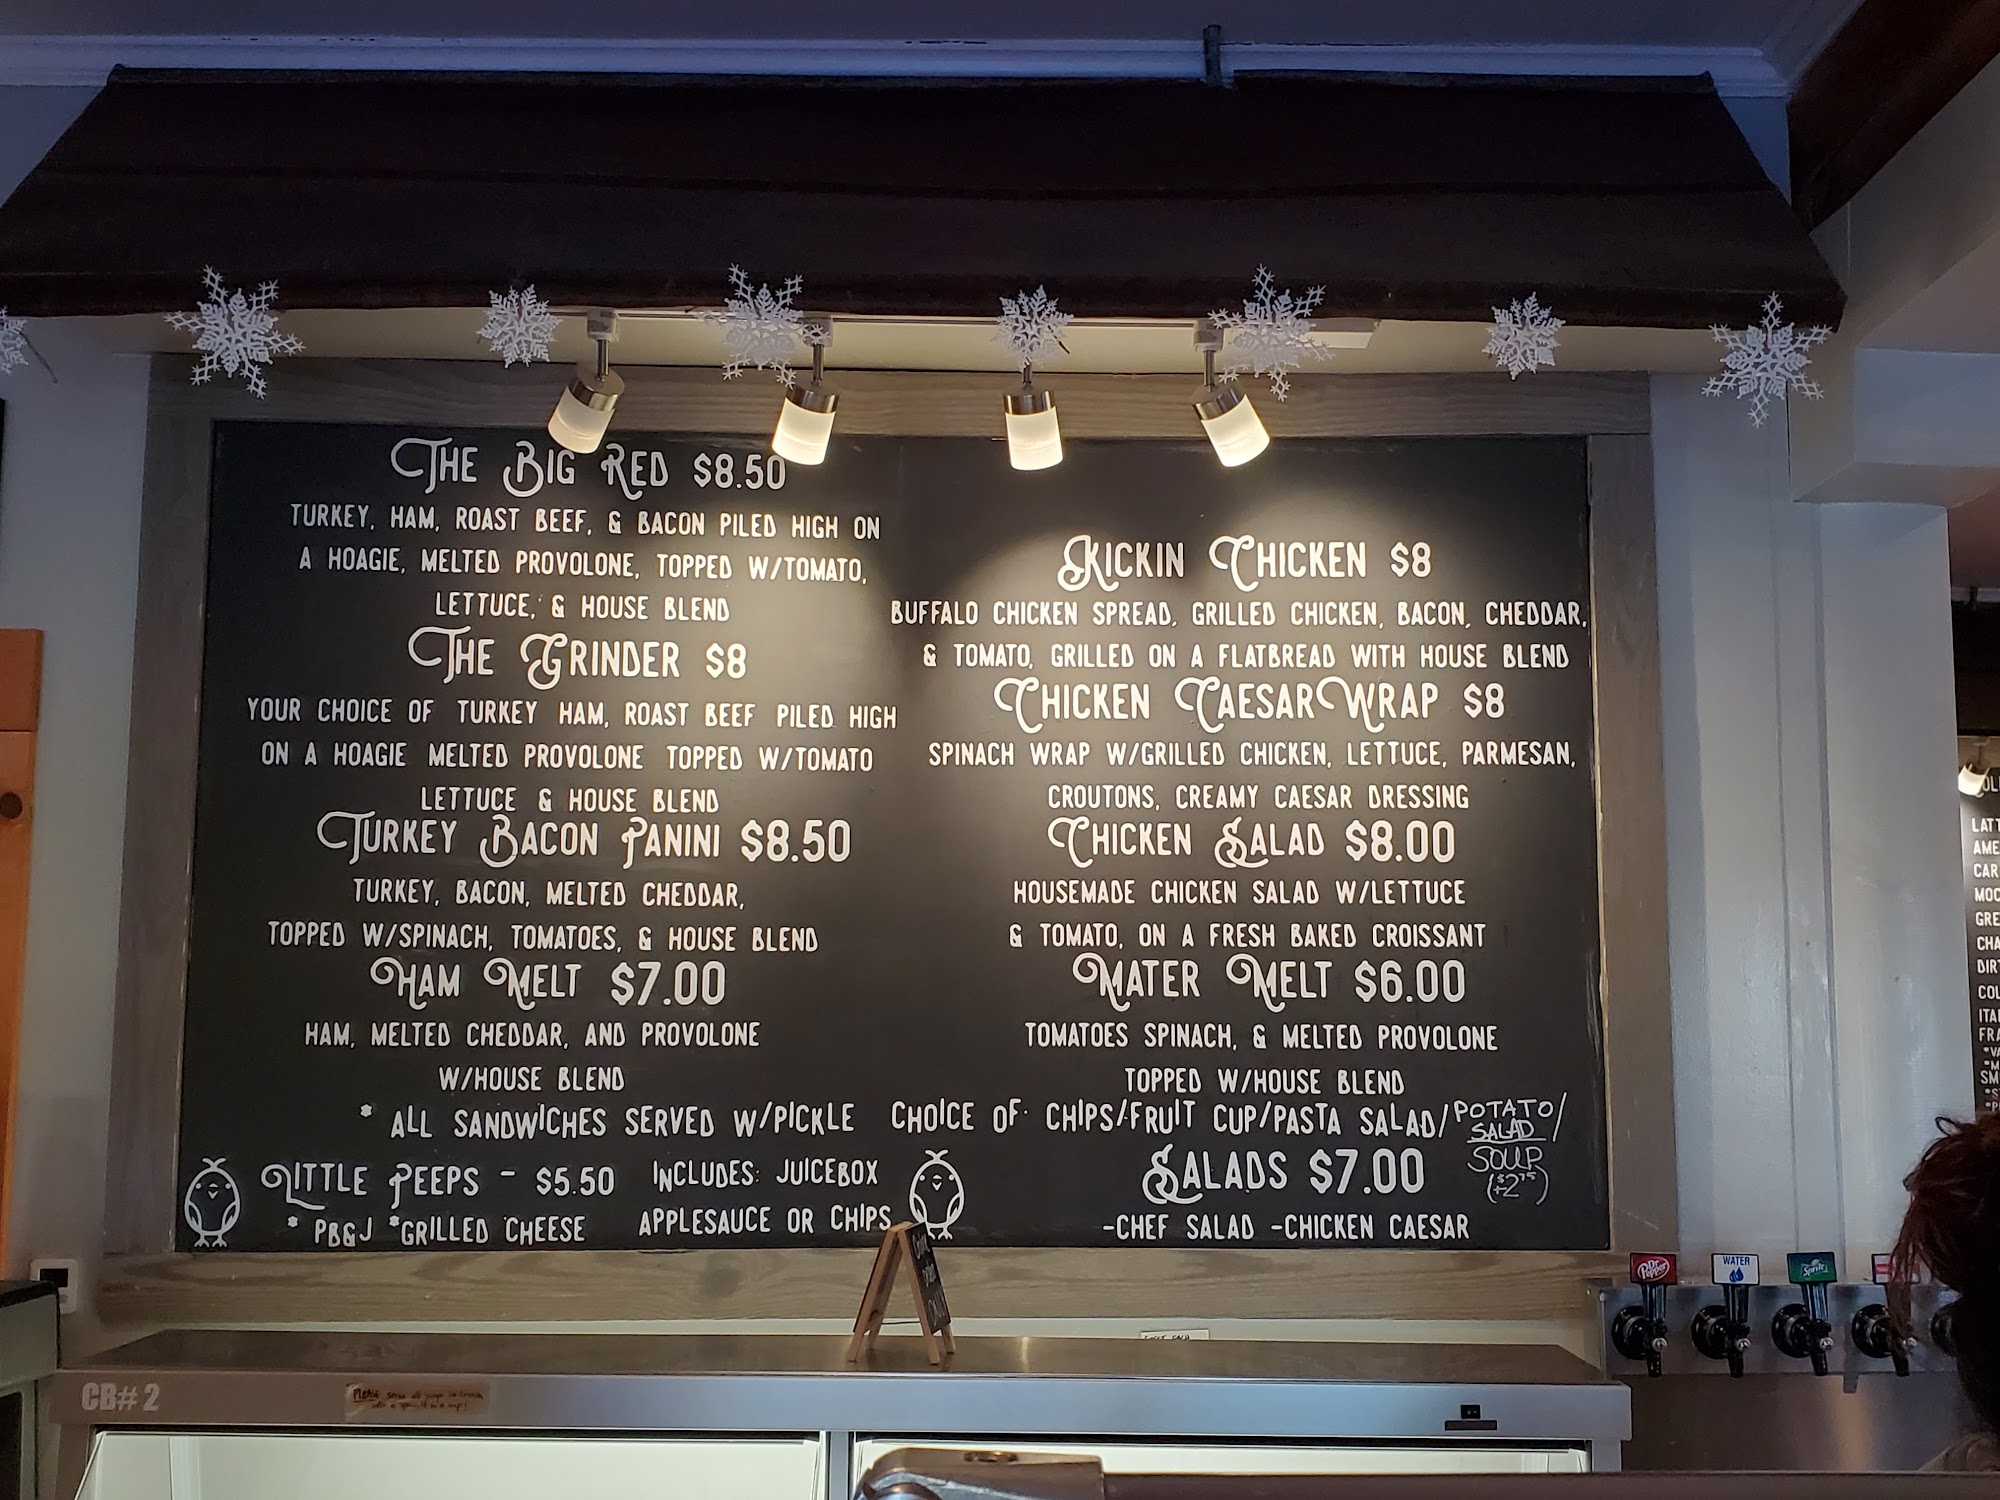 The Big Red $8.50
Turkey, Ham, Roast Beef, & Bacon Piled High on
a Hoagie, Melted Provolone, Topped w/Tomato,
Lettuce, & House Blend
The Grinder $8
Your Choice of Turkey Ham, Roast Beef Piled High
on a Hoagie Melted Provolone Topped w/Tomato
Lettuce & House Blend
Turkey Bacon Panini $8.50
Turkey, Bacon, Melted Cheddar,
Topped w/Spinach, Tomatoes, & House Blend
Ham Melt $7.00
Ham, Melted Cheddar, and Provolone
w/House Blend
Kickin Chicken $8
Buffalo Chicken Spread, Grilled Chicken, Bacon, Cheddar,
& Tomato, Grilled on a Flatbread with House Blend
Chicken Caesar Wrap $8
Spinach Wrap w/Grilled Chicken, Lettuce, Parmesan,
Croutons, Creamy Caesar Dressing
Chicken Salad $8.00
Housemade Chicken Salad w/Lettuce
& Tomato, on a Fresh Baked Croissant
Mater Melt $6.00
Tomatoes Spinach, & Melted Provolone
Topped w/House Blend
* All Sandwiches Served w/Pickle Choice of Chips/Fruit Cup/Pasta Salad/Potato Salad/
Soup
(+$2.75)
Little Peeps - $5.50
* PB&J *Grilled Cheese
Includes: Juicebox
Applesauce or Chips
Salads $7.00
-Chef Salad -Chicken Caesar
Dr Pepper
WATER
Sprite
CB# 2
Please